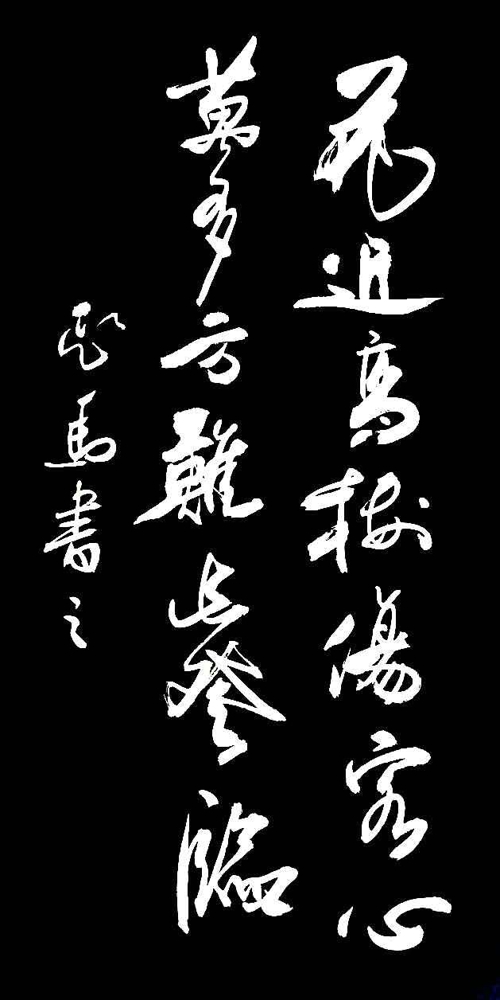 花近高樓傷客心
萬多方難此登臨
馬書之